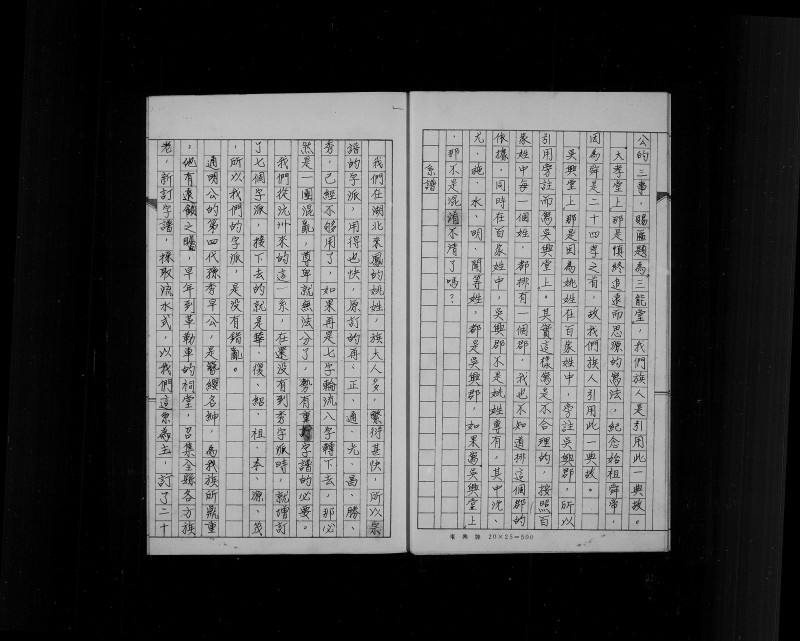 公的三事，賜匾題為三能堂，我們族人是引用此一典故。
大孝堂上那是慎終追遠而思源的寫法，紀念始祖舜帝，
因為舜是二十四孝之首，故我們族人引用此一典故。
吳興堂上那是因為姚姓在百家姓中，旁註吳興郡，所以
引用旁註而寫吳興堂上。其實這樣寫是不合理的，按照百
家姓中每一個姓，都排有一個郡，我也不知道排這個郡的
依據，同時在百家姓中，吳興郡不是姚姓專有，其中沈、
尤、施、水、明、閔等姓，都是吳興郡，如果寫吳興堂上
，那不是混淆不清了嗎？
系譜
東興牌 20×25=500
一
我們在湖北來鳳的姚姓，族大人多，繁衍甚快，所以宗
譜的字派，用得也快，原訂的再、正、通、光、昌、勝、
秀，已經不够用了，如果再是七字輪流八字轉下去，那必
然是一團混亂，尊卑就無法分了，勢有重增字譜的必要。
我們從沅州來的這一系，在還沒有到秀字派時，就增訂
了七個字派，接下去的就是華、復、紹、祖、泰、源、茂
，所以我們的字派，是沒有錯亂。
通明公的第四代孫秀早公，是簪纓名紳，為我族所鼎重
，他有遠鎮之矚，早年到革勒車的祠堂，召集全縣各方族
老，新訂字譜，採取流水式，以我們這系為主，訂了二十